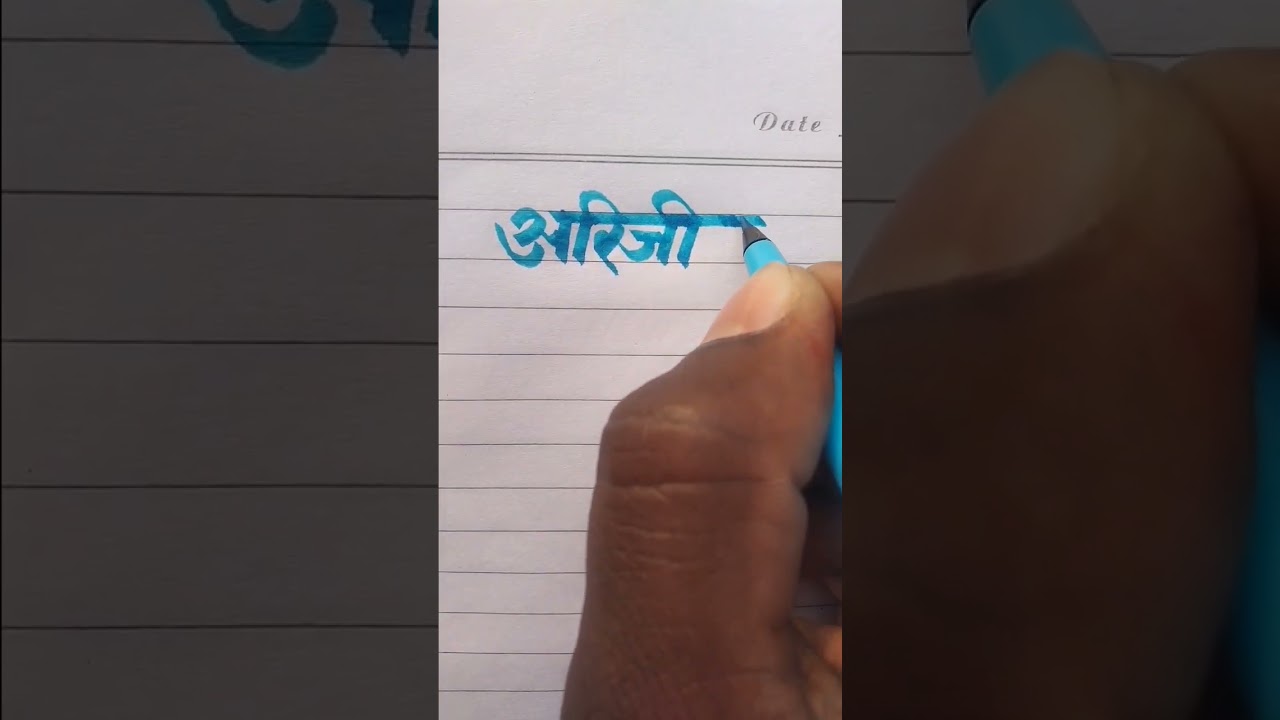 Date
अरिजी